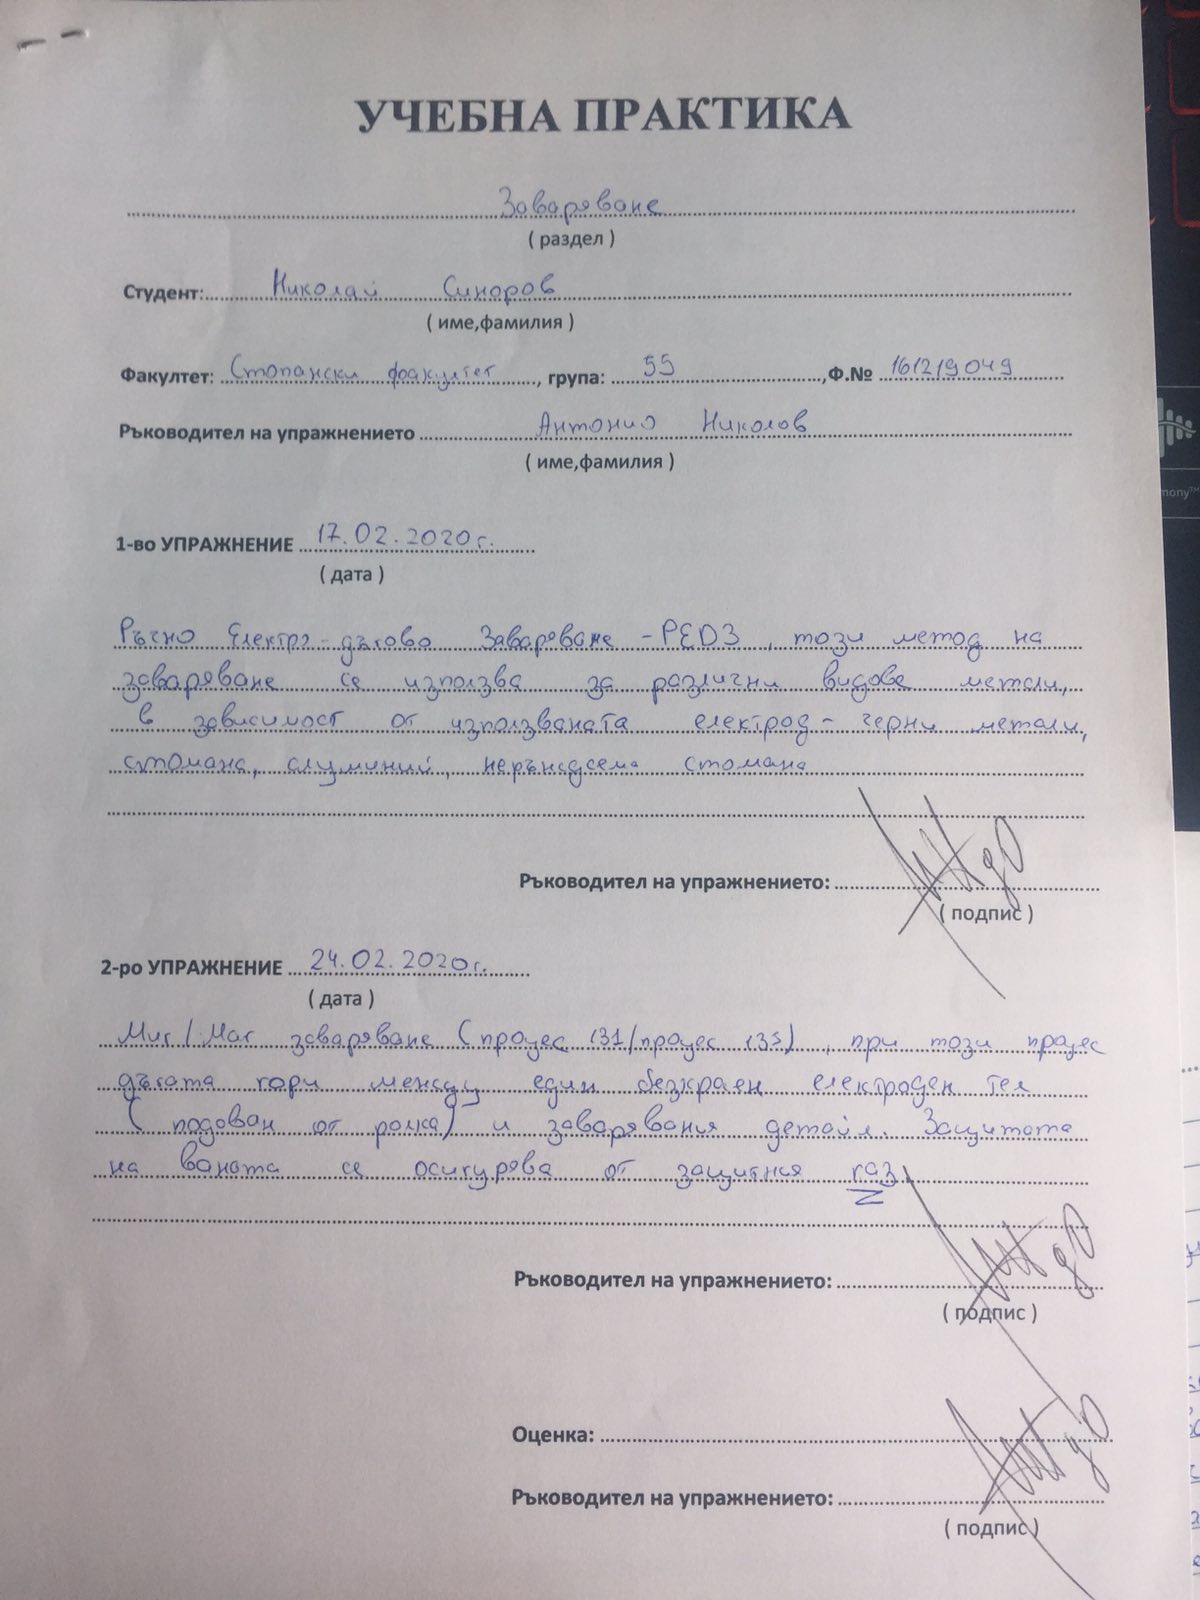 УЧЕБНА ПРАКТИКА
Заваряване
( раздел )
Студент: Николай Синоров
( име,фамилия )
Факултет: Стопански факултет, група: 55, Ф.№ 161219049
Ръководител на упражнението Антонио Николов
( име,фамилия )
1-во УПРАЖНЕНИЕ 17.02.2020г.
( дата )
Ръчно Електро-дъгово Заваряване - РЕДЗ, този метод на
заваряване се използва за различни видове метали,
в зависимост от използваната електрод - черни метали,
стомана, алуминий, неръждаема стомана
Ръководител на упражнението:
( подпис )
2-ро УПРАЖНЕНИЕ 24.02.2020г.
( дата )
Миг/Маг заваряване (процес 131/процес 135), при този процес
дъгата гори между един безкраен електроден тел
( подаван от ролка) и заварявания детайл. Защитата
на ваната се осигурява от защитния газ
Ръководител на упражнението:
( подпис )
Оценка:
Ръководител на упражнението:
( подпис )
mony™